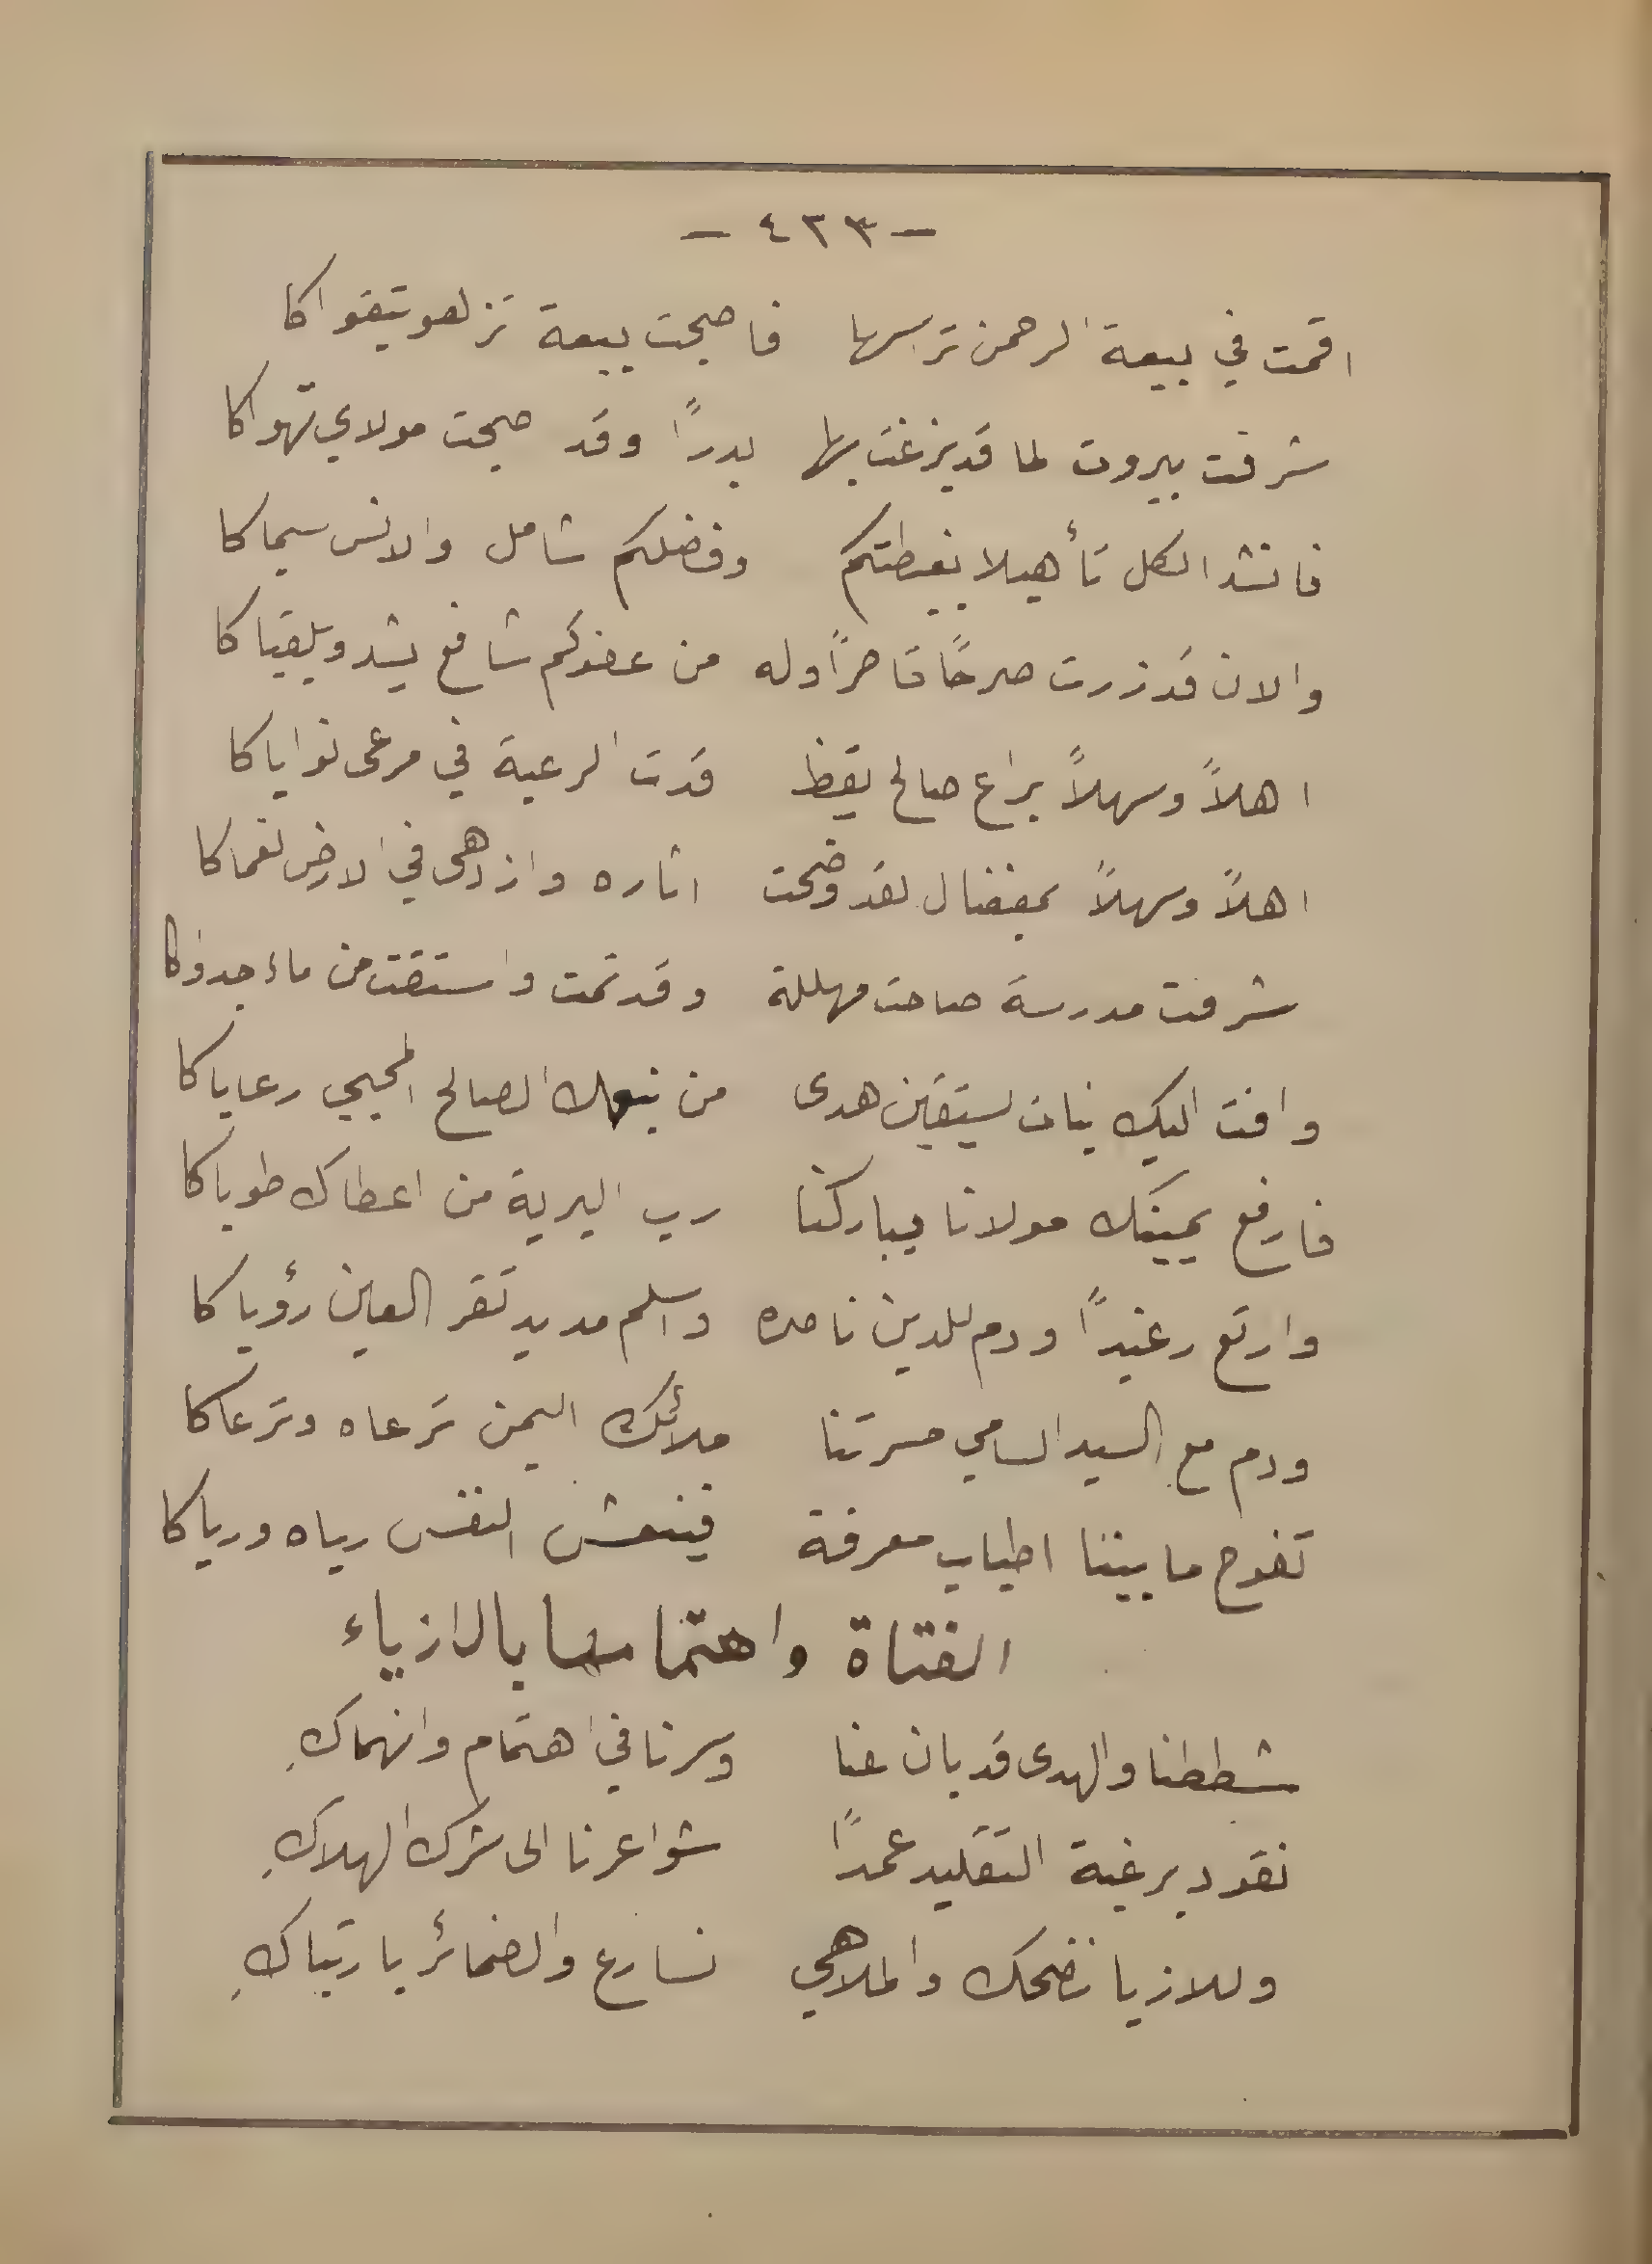 - ٤٢٣ -
اقمت في بيعة الرحمن ترأسها فاصبحت بيعة تزهو بتقواكا
شرفت بيروت لما قد بزغت بها بدراً وقد صبحت مولاي تهواكا
فانشد الكل تأهيلا بغبطتكم وفضلكم شامل والانس سيماكا
والان قد زرت صرحًا قاصراً وله من عفوكم شافع يشدو بلقياكا
اهلاً وسهلاً براع صالح يقظ قدت الرعية في مرعى نواياكا
اهلاً وسهلاً بمفضال لقد وضحت اثاره وازدهى في الارض نعماكا
شرفت مدرسة صاحت مهللة وقد نمت واستقت من ماء جدواكا
وافت اليك بنات يستقين هدى من نبعك الصالح المحيي رعاياكا
فارفع يمينك مولانا يباركنا رب البرية من اعطاك طوباكا
وارتع رغيداً ودم للدين ناصره واسلم مديد تقر العين رؤياكا
ودم مع السيد السامي مسرتنا ملائك اليمن ترعاه وترعاكا
تفوح ما بيننا اطياب معرفة فينعش النفس رياه ورياكا
الفتاة واهتمامها بالازياء
شططنا والهدى قد بان عنا وسرنا في اهتمام وانهماكِ
نقود برغبة التقليد عمداً شواعرنا الى شرك الهلاكِ
وللازيا نضحك والملاهي نسارع والضمائر بارتباكِ